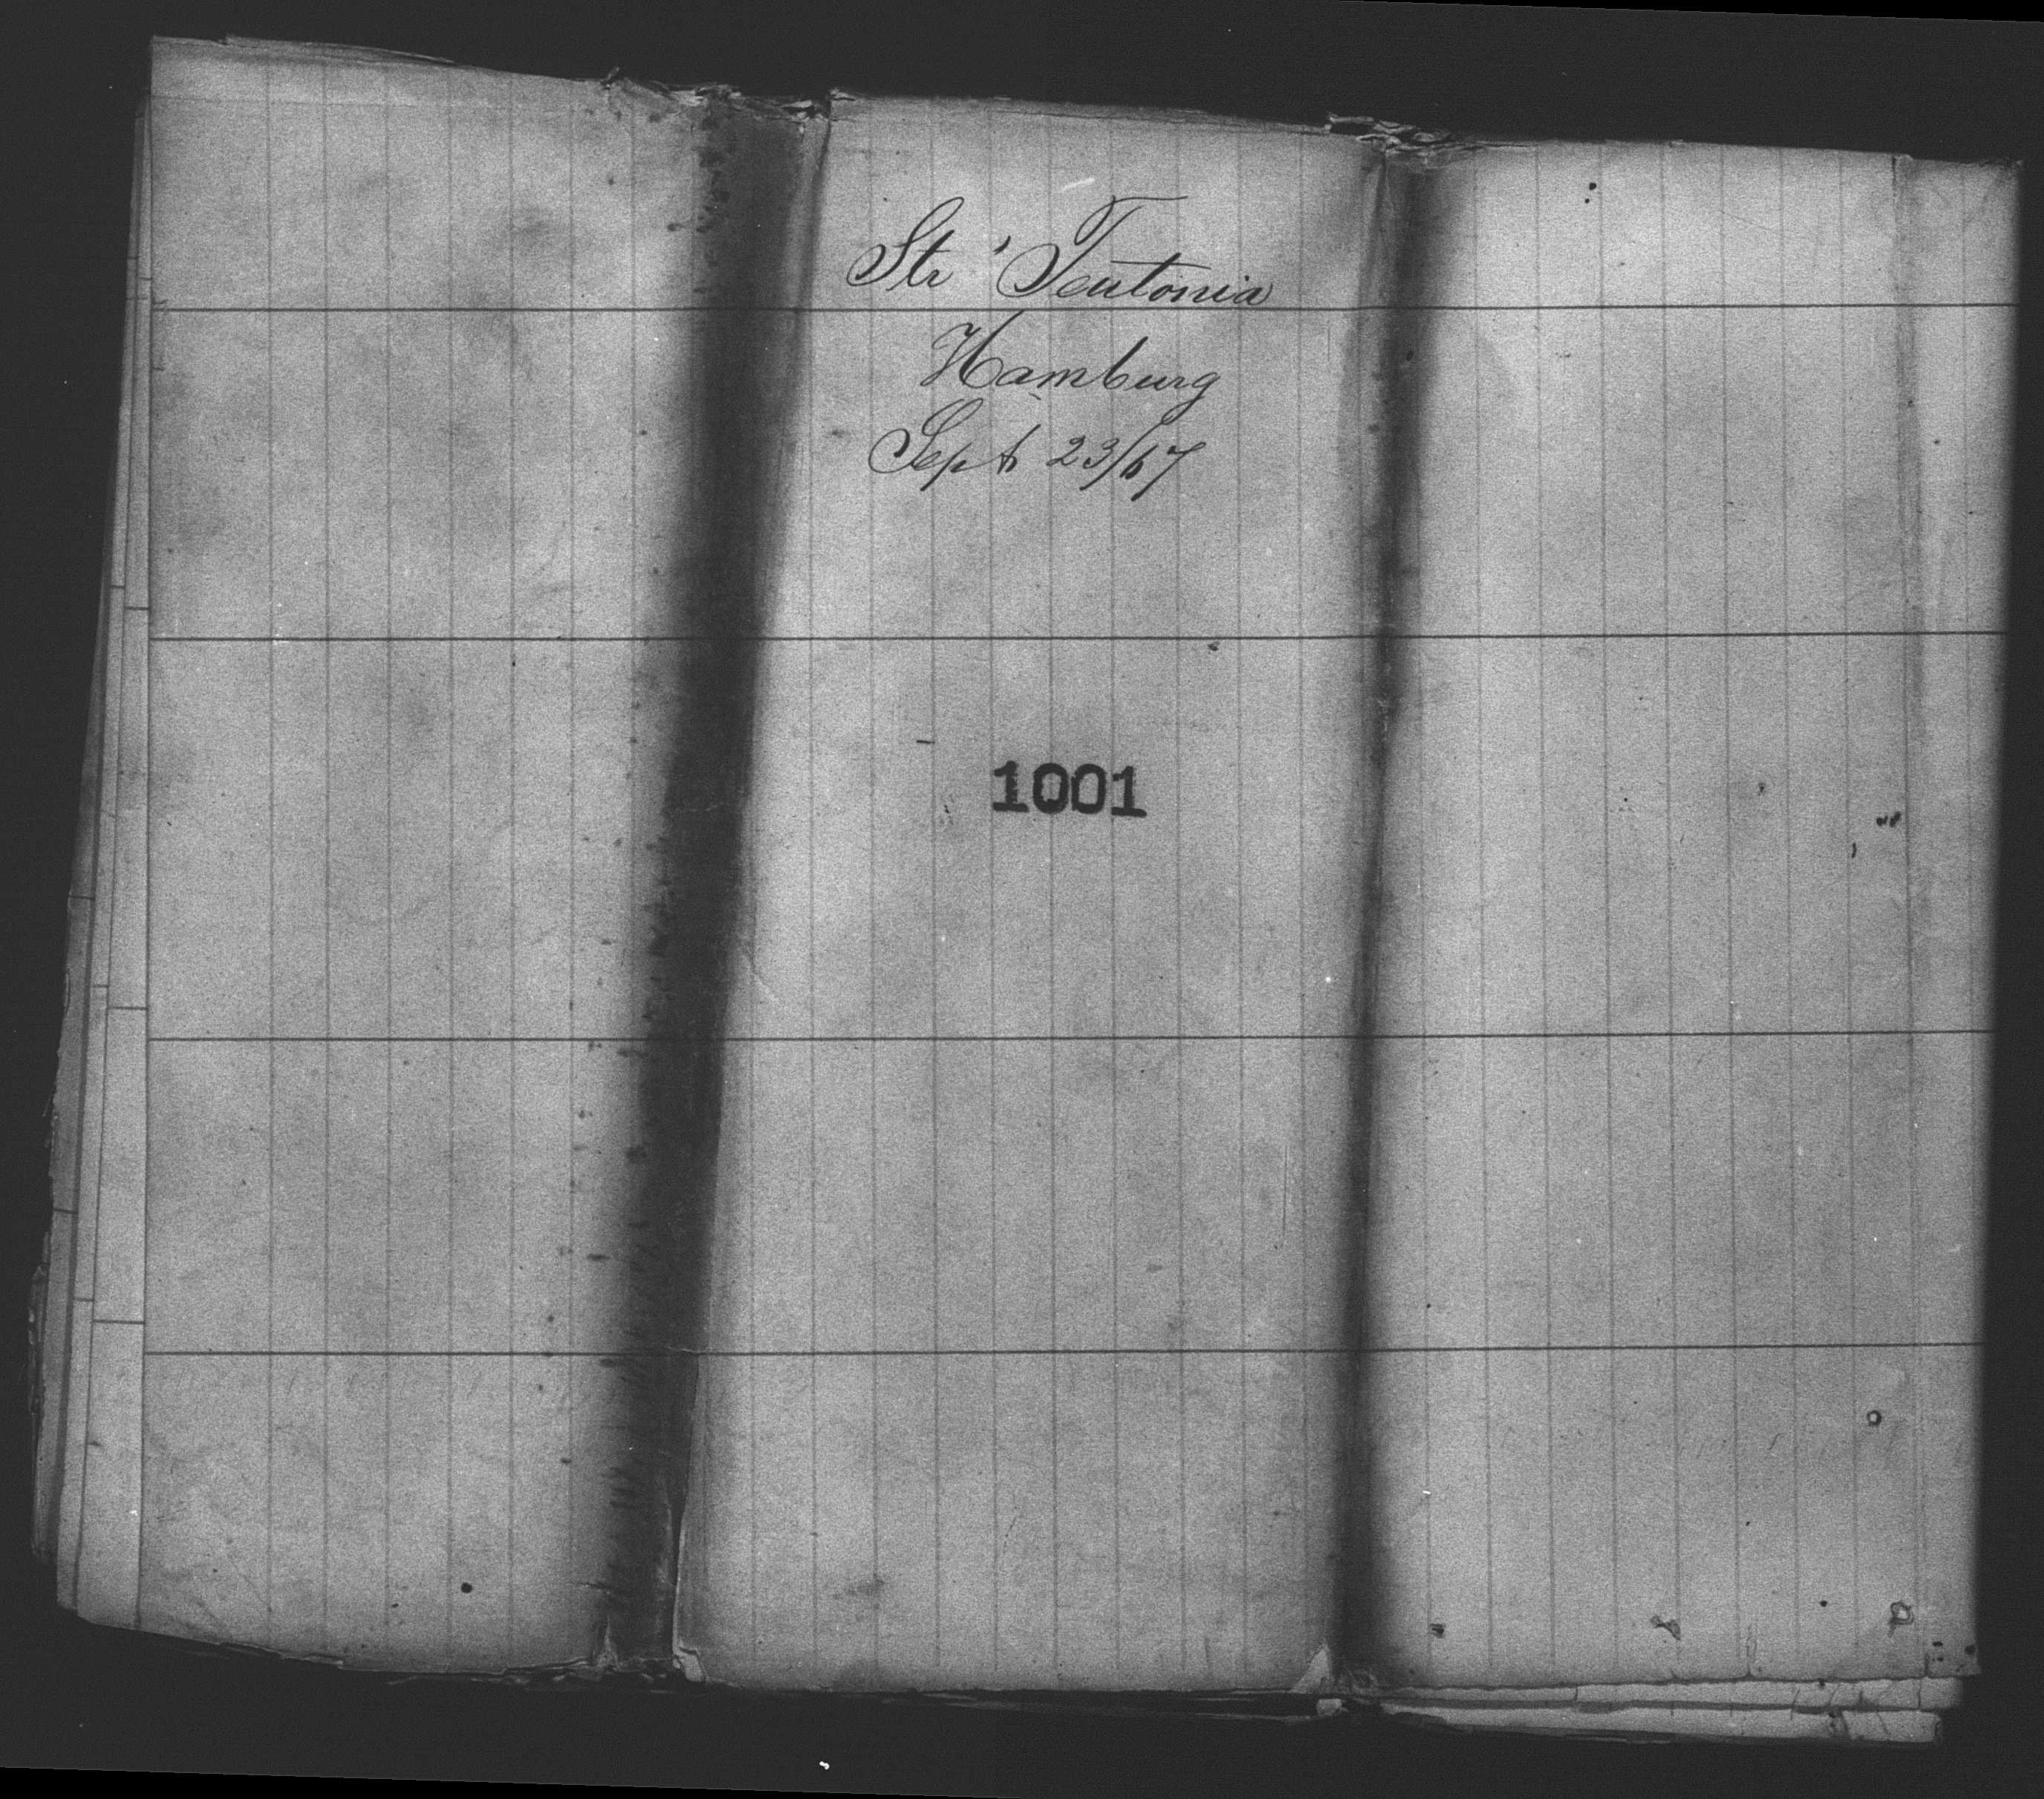 Str 'Teutonia
Hamburg
Sept 23/67
1001